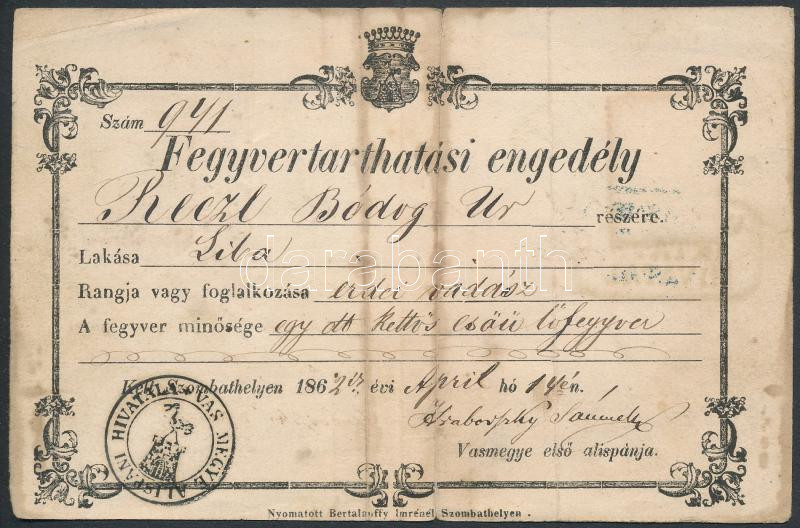 Szám 941
Fegyvertarthatási engedély
Reczl Bódog Ur részére.
Lakása Liba
Rangja vagy foglalkozása erdei vadász
A fegyver minősége egy db kettős csöü lőfegyver
Kelt Szombathelyen 1862 évi April hó 14én.
Vasmegye első alispánja.
ALISPÁNI HIVATALA VAS MEGYE
Nyomatott Bertalanffy Imrénél Szombathelyen.
darabanth